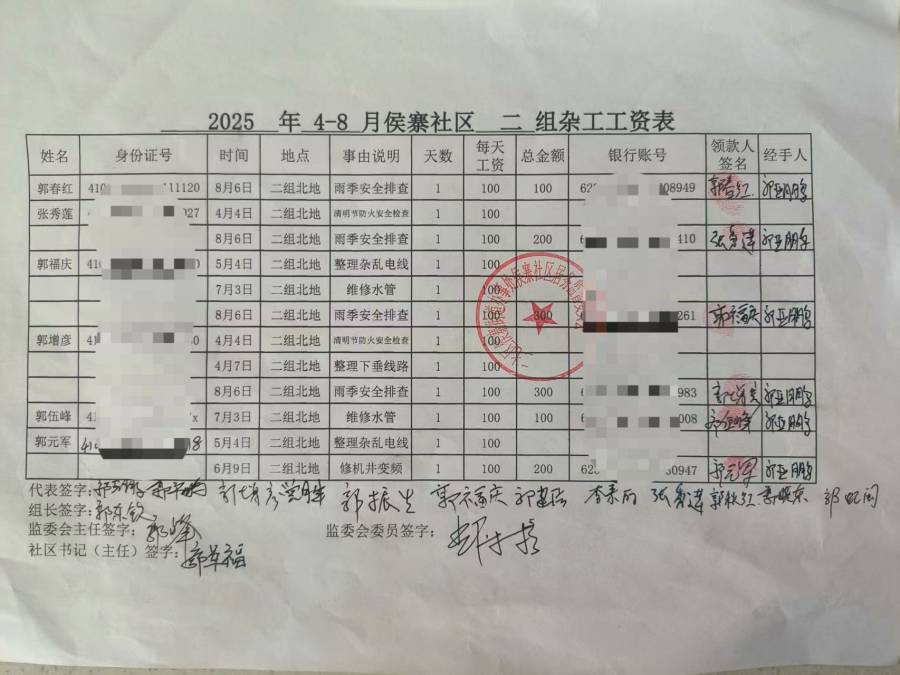 2025 年 4-8 月侯寨社区 二 组杂工工资表
姓名 身份证号 时间 地点 事由说明 天数 每天工资 总金额 银行账号 领款人签名 经手人
郭春红 410 111120 8月6日 二组北地 雨季安全排查 1 100 100 62 08949 郭春红
张秀莲 4 027 4月4日 二组北地 清明节防火安全检查 1 100
8月6日 二组北地 雨季安全排查 1 100 200 6 410 张秀莲
郭福庆 41 5月4日 二组北地 整理杂乱电线 1 100
7月3日 二组北地 维修水管 1 100
8月6日 二组北地 雨季安全排查 1 100 300 261 郭福庆
郭增彦 4 0 4月4日 二组北地 清明节防火安全检查 1 100
4月7日 二组北地 整理下垂线路 1 100
8月6日 二组北地 雨季安全排查 1 100 300 983
郭伍峰 4 x 7月3日 二组北地 维修水管 1 100 100 008 郭伍峰
郭元军 410 8 5月4日 二组北地 整理杂乱电线 1 100
6月9日 二组北地 修机井变频 1 100 200 62 30947 郭元军
代表签字: 郭振生 郭福庆 张秀莲
组长签字: 郭东钦
监委会主任签字: 郭峰 监委会委员签字:
社区书记（主任）签字: